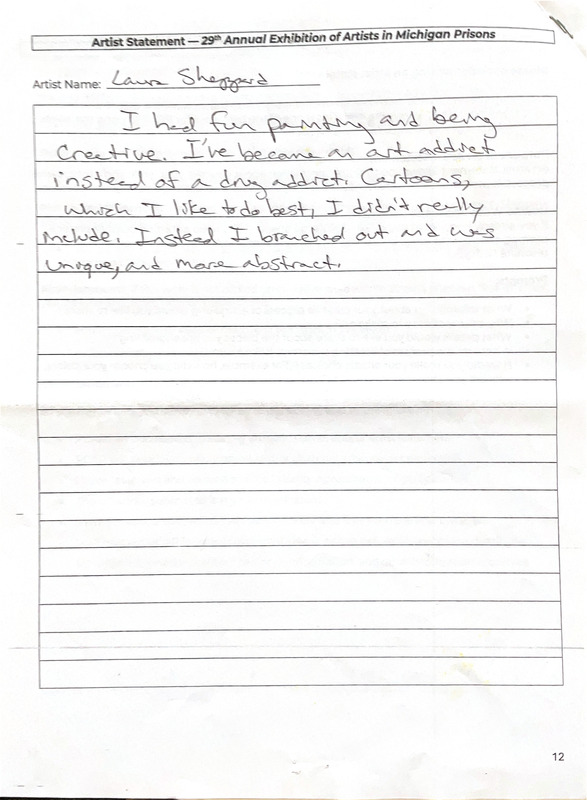 Artist Statement — 29th Annual Exhibition of Artists in Michigan Prisons
Artist Name: Laura Sheppard
I had fun painting and being
creative. I've became an art addict
instead of a drug addict. Cartoons,
which I like to do best, I didn't really
include. Instead I branched out and was
unique, and more abstract.
12